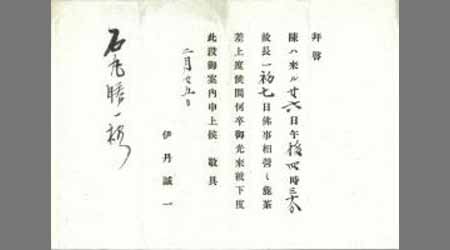 拝啓
陳ハ来ル廿六日午後四時三十分
故長一初七日佛事相營ミ粗茶
差上度候間何卒御光来被下度
此段御案内申上候 敬具
二月廿五日
伊丹誠一
石丸勝一様